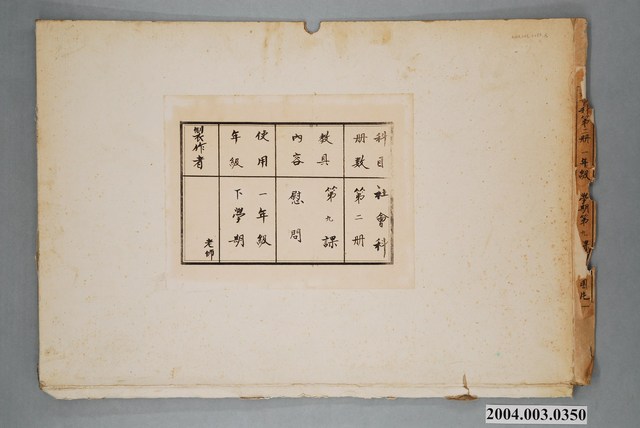 科目 社會科
冊數 第二冊
教具 第九課
內容 慰問
使用 一年級
年級 下學期
製作者 老師
第二冊 一年級 學期第九課
2004.003.0350